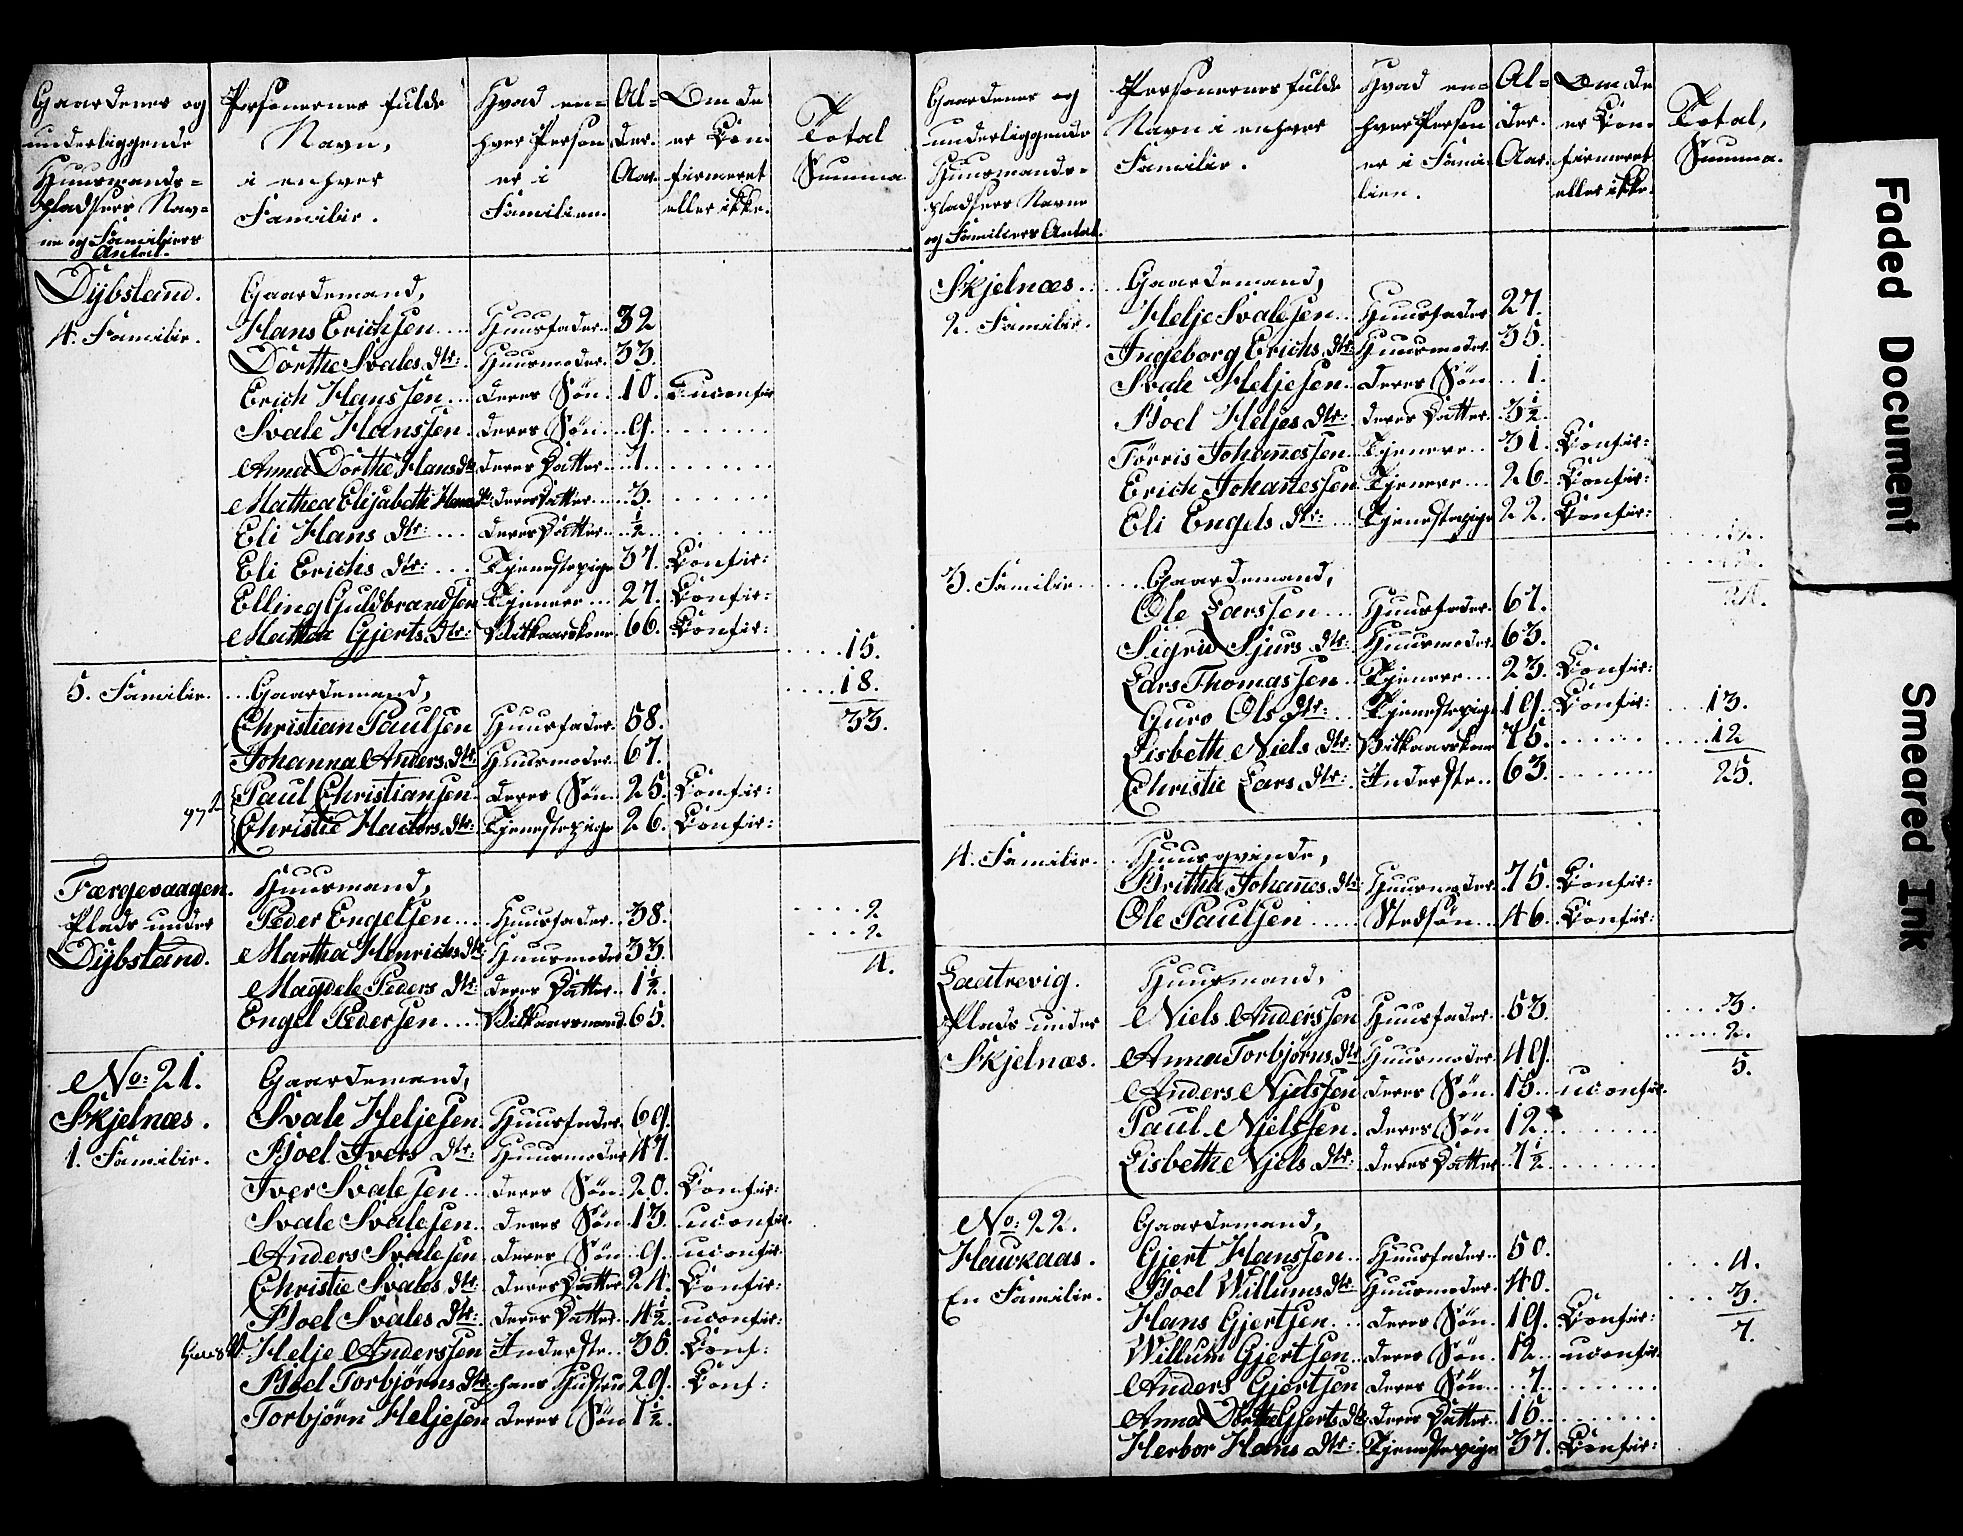 Gaardenes og
underliggende
Huusmands-
pladsers Nav-
ne og Familiers
Antal.
Personernes fulde
Navn,
i enhver
Familie.
Hvad en-
hver Person
er i
Familien.
Al-
der.
Aar.
Om de
er Con-
firmeret
eller ikke.
Total
Summa
Dybsland. Gaardemand,
4. Familie. Hans Erichsen Huusfader 32
Dorthe Svales Dtr: Huusmoder 33.
Erich Hanssen deres Søn 10. uconfir
Svale Hanssen deres Søn 9.
Anna Dorthe Hansdtr deres Datter 7.
Mathea Elisabeth Hans dtr: deres Datter 3.
Eli Hans Dtr: deres Datter ½
Eli Erichs Dtr: Tjenestepige 37. Confir:
Elling Guldbrandsen Tjenere 27. Confir:
Martha Gjerts Dtr: Vilkaarskone 66. Confir:
15.
18.
33.
5. Familie. Gaardemand,
Christian Paulsen Huusfader 58.
Johanna Anders Dtr: Huusmoder 67.
Paul Christiansen deres Søn 25. Confir:
Christie Hactors Dtr: Tjenestepige 26. Confir:
Færgevaagen. Huusmand,
Plads under Peder Engelsen Huusfader 38.
Dybsland. Martha Henrichs Dtr: Huusmoder 33.
Magdele Peders Dtr: deres Datter 1½.
Engel Pedersen Vilkaarsmand 65.
2
2
4.
No: 21. Gaardemand,
Skjelnæs. Svale Heljesen Huusfader 69.
1. Familie. Boel Ivers Dtr: Huusmoder 47.
Iver Svalesen deres Søn 20. Confir:
Svale Svalesen deres Søn 13. uconfir.
Anders Svalesen deres Søn 9. uconfir
Christie Svales Dtr: deres Datter 24. Confir:
Boel Svales Dtr: deres Datter 4½ uconfir:
Helje Anderssen Inderste 35. Conf:
Boel Torbjørns Dtr: hans Hustru 29. Conf:
Torbjørn Heljesen deres Søn 1½.
Gaardenes og
underliggende
Huusmands-
pladsers Navne
og Familiers Antal.
Personernes fulde
Navn i enhver
Familie.
Hvad en-
hver Person
er i Fami-
lien.
Al-
der.
Aar.
Om de
er Con-
firmeret
eller ikke.
Total,
Summa.
Skjelnæs. Gaardemand,
2. Familie. Helje Svalesen Huusfader 27.
Ingeborg Erichs Dtr: Huusmoder 35.
Svale Heljesen deres Søn 1.
Boel Heljes Dtr: deres Datter 3½.
Tørris Johanessen Tjenere 31. Confir:
Erich Johanessen Tjenere 26. Confir:
Eli Engels Dtr: Tjenestepige 22. Confir:
3. Familie Gaardemand,
Ole Larssen Huusfader 67.
Sigrid Sjurs Dtr: Huusmoder 63.
Lars Thomassen Tjenere 23. Confir:
Guro Ols Dtr: Tjenestepige 19. Confir:
Lisbethe Niels Dtr: Vilkaarskone 75.
Christie Lars Dtr: Inderste 63.
13.
12
25.
4. Familie. Huusqvinde,
Britha Johanes Dtr: Huusmoder 75. Confir:
Ole Paulsen Stedsøn 46. Confir:
Laatrevig. Huusmand,
Plads under Niels Anderssen Huusfader 53.
Skjelnæs. Anna Torbjørns Dtr Huusmoder 49.
Anders Nielssen deres Søn 15. uconfir.
Paul Nielssen deres Søn 12.
Lisbethe Niels Dtr: deres Datter 7½
3.
2.
5.
No: 22. Gaardemand,
Haukaas. Gjert Hanssen Huusfader 50.
En Familie. Boel Willums Dtr Huusmoder 40.
Hans Gjertsen deres Søn 19. Confir:
Willum Gjertsen deres Søn 12. uconfir.
Anders Gjertsen deres Søn 7.
Anna Dorthe Gjerts Dtr deres Datter 15.
Herbor Hans Dtr: Tjenestepige 37. Confir:
4.
3.
7.
Faded Document
Smeared Ink